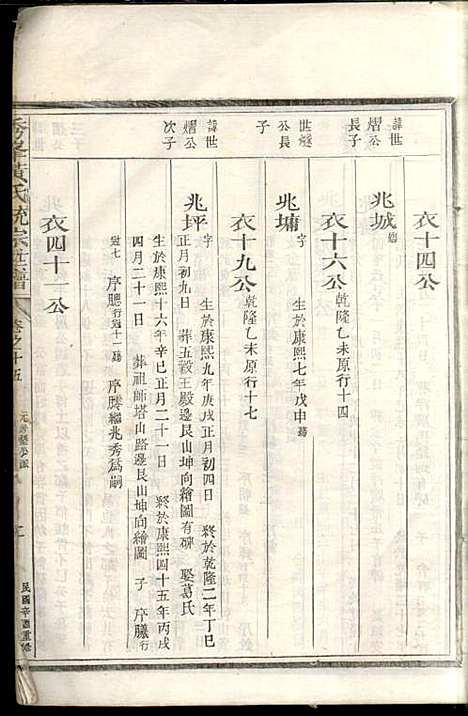 衣十四公
諱世熠公長子
兆城 殤
衣十六公 乾隆乙未原行十四
諱世燧公長子
兆墉 字 生於康熙七年戊申 殤
衣十九公 乾隆乙未原行十七
諱世熠公次子
兆坪 字 生於康熙九年庚戌正月初四日 終於乾隆二年丁巳
正月初九日 葬五穀王殿邊艮山坤向繪圖有碑 娶葛氏
生於康熙十六年辛巳正月二十一日 終於康熙四十五年丙戌
四月二十一日 葬祖師塔山路邊艮山坤向繪圖 子 序臙 行
冠七 序腮 行冠十一殤 序騰繼兆秀為嗣
衣四十一公
黃氏統宗世譜
卷之十五
民國辛酉重修